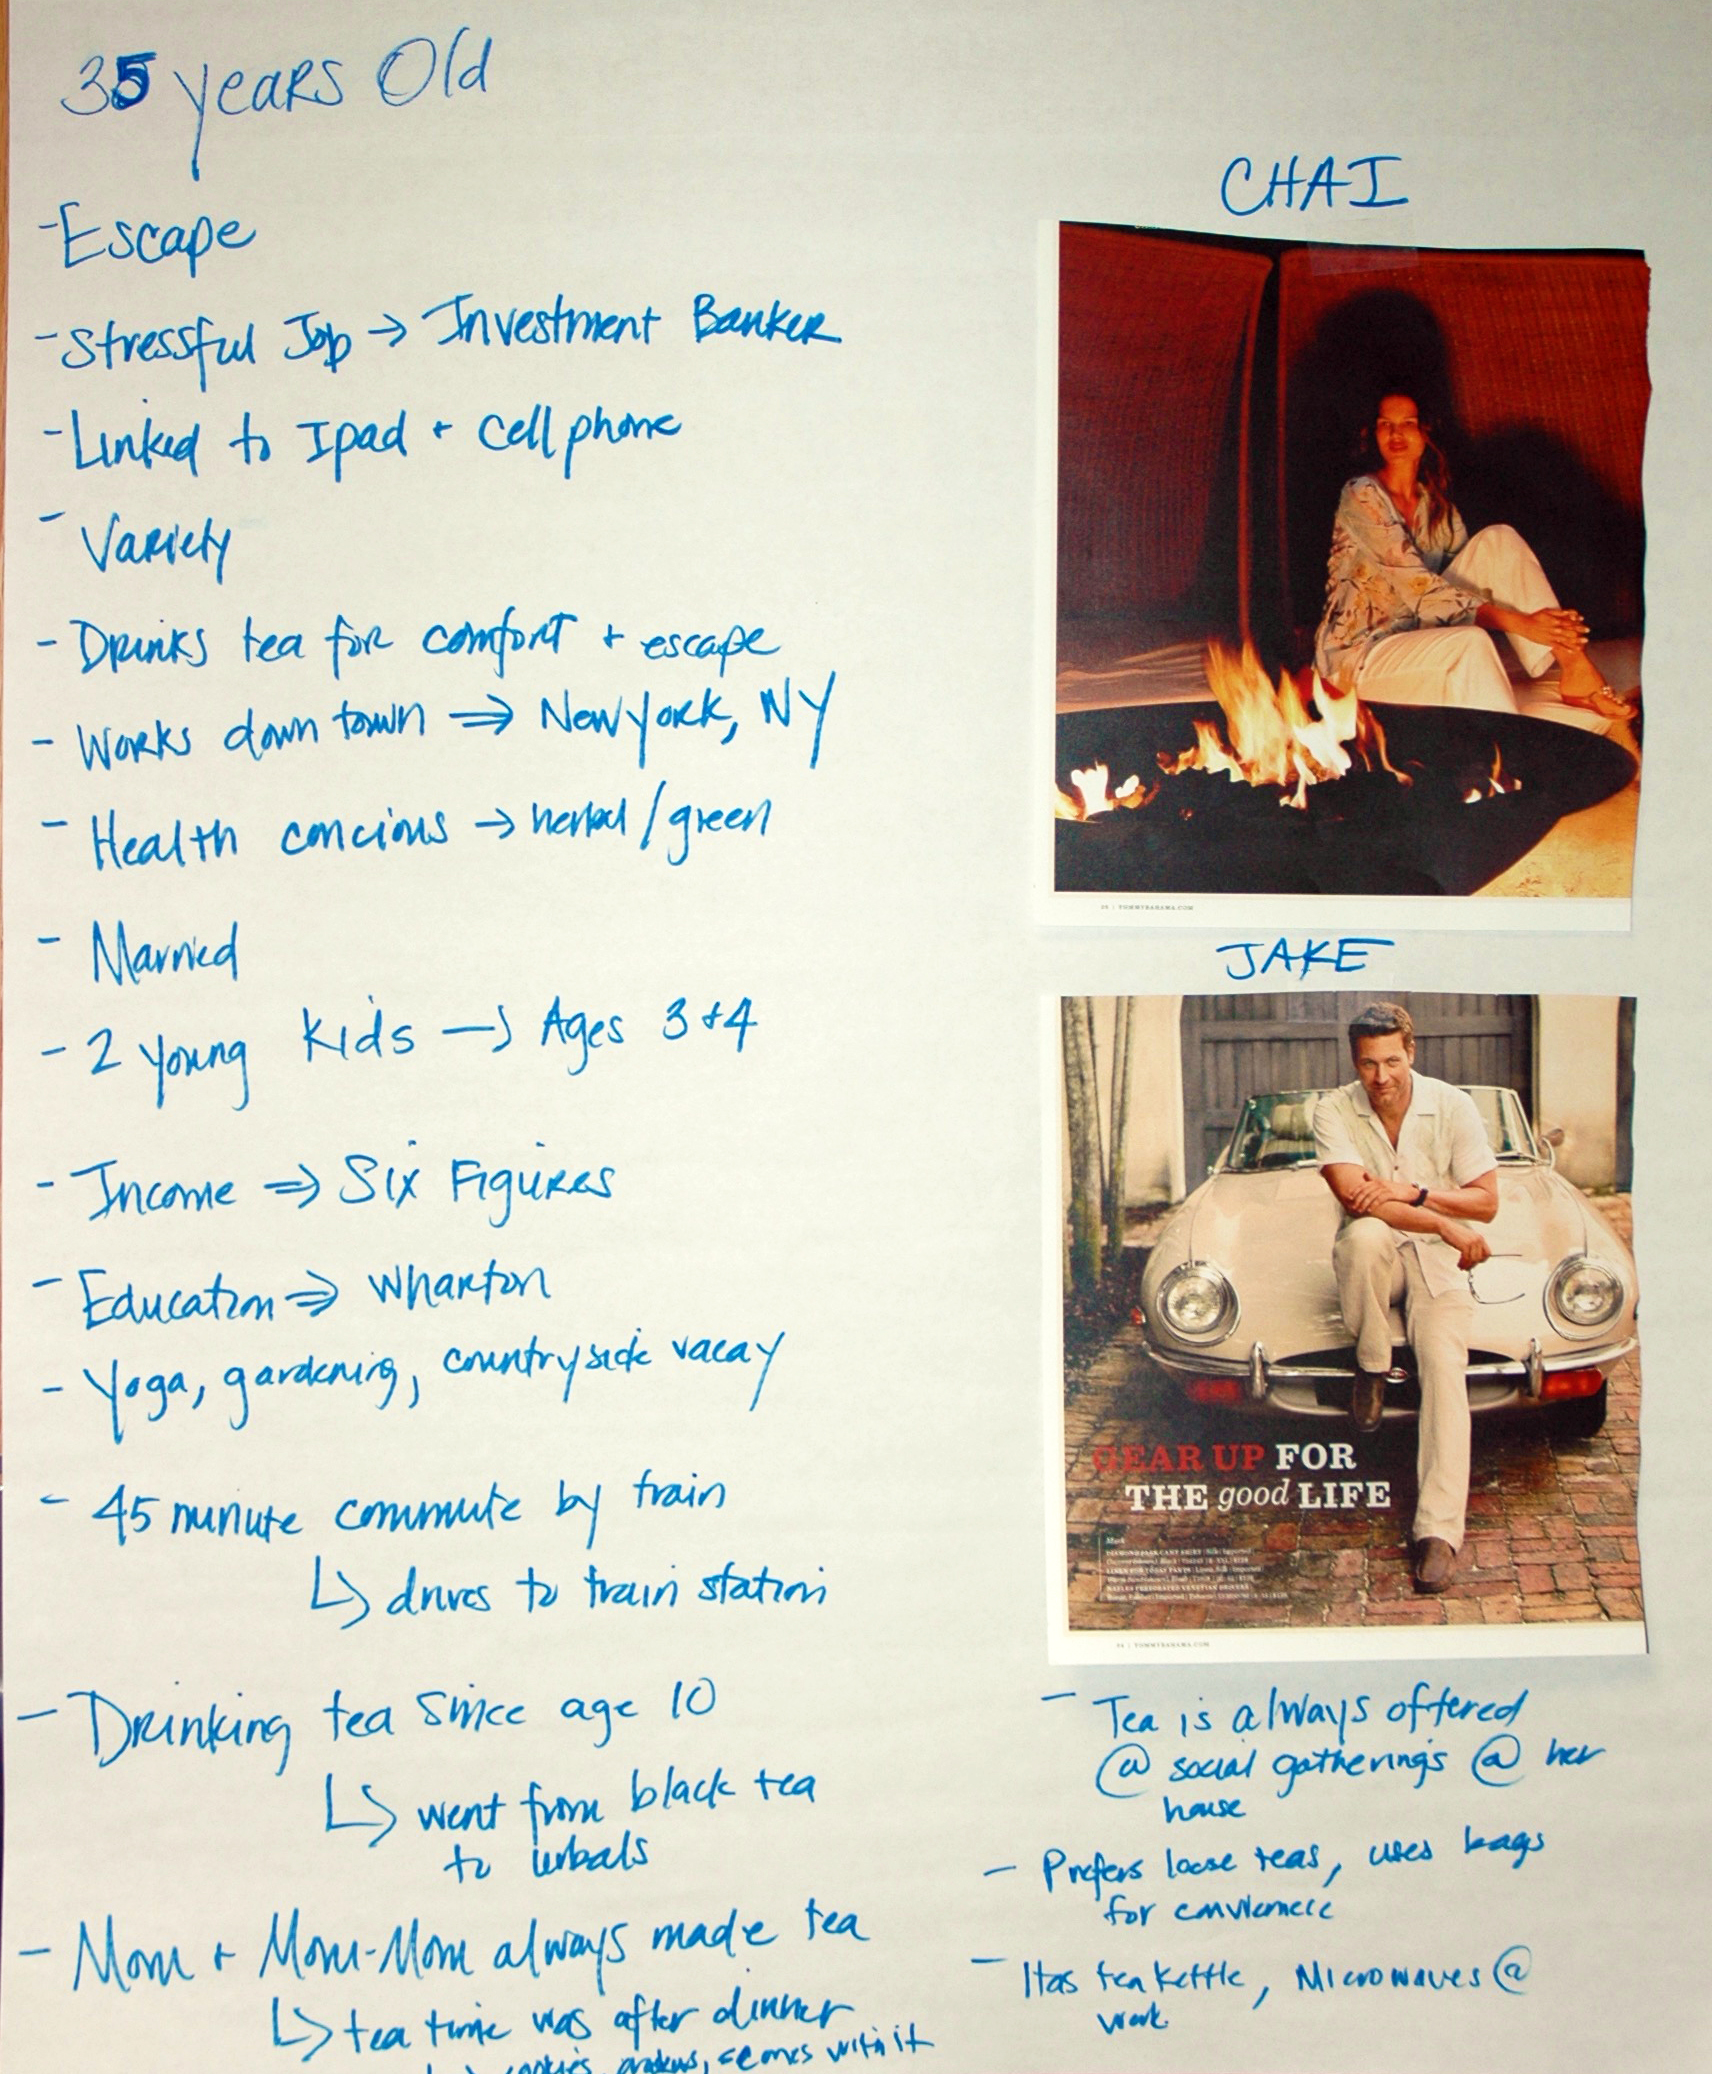 35 years Old
- Escape
- Stressful Job → Investment Banker
- Linked to Ipad + cell phone
- Variety
- Drinks tea for comfort + escape
- Works down town ⇒ New york, NY
- Health concious → herbal / green
- Married
- 2 young kids → Ages 3 + 4
- Income ⇒ Six Figures
- Education ⇒ Wharton
- Yoga, gardening, countryside vacay
- 45 minute commute by train
↳ drives to train station
- Drinking tea since age 10
↳ went from black tea
to herbals
- Mom + Mom-Mom always made tea
↳ tea time was after dinner
cookies, scones with it
CHAI
26 | TOMMYBAHAMA.COM
JAKE
GEAR UP FOR
THE good LIFE
Mark
TOMMYBAHAMA.COM
- Tea is always offered
@ social gatherings @ her
house
- Prefers loose teas, uses bags
for convience
- Has tea kettle, Microwaves @
work